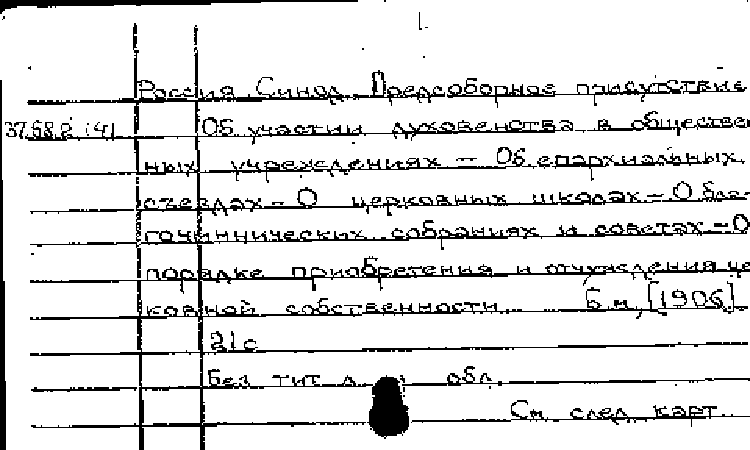 Россия. Синод. Предсоборное присутствие
37.58.2 (4) Об участии духовенства в обществен
ных учреждениях – Об епархиальных
съездах – О церковных школах – О бла-
гочиннических собраниях и советах – О
порядке приобретения и отчуждения це
ковной собственности. Б.м, [1906].
21с
Без тит л обл.
См. след карт.